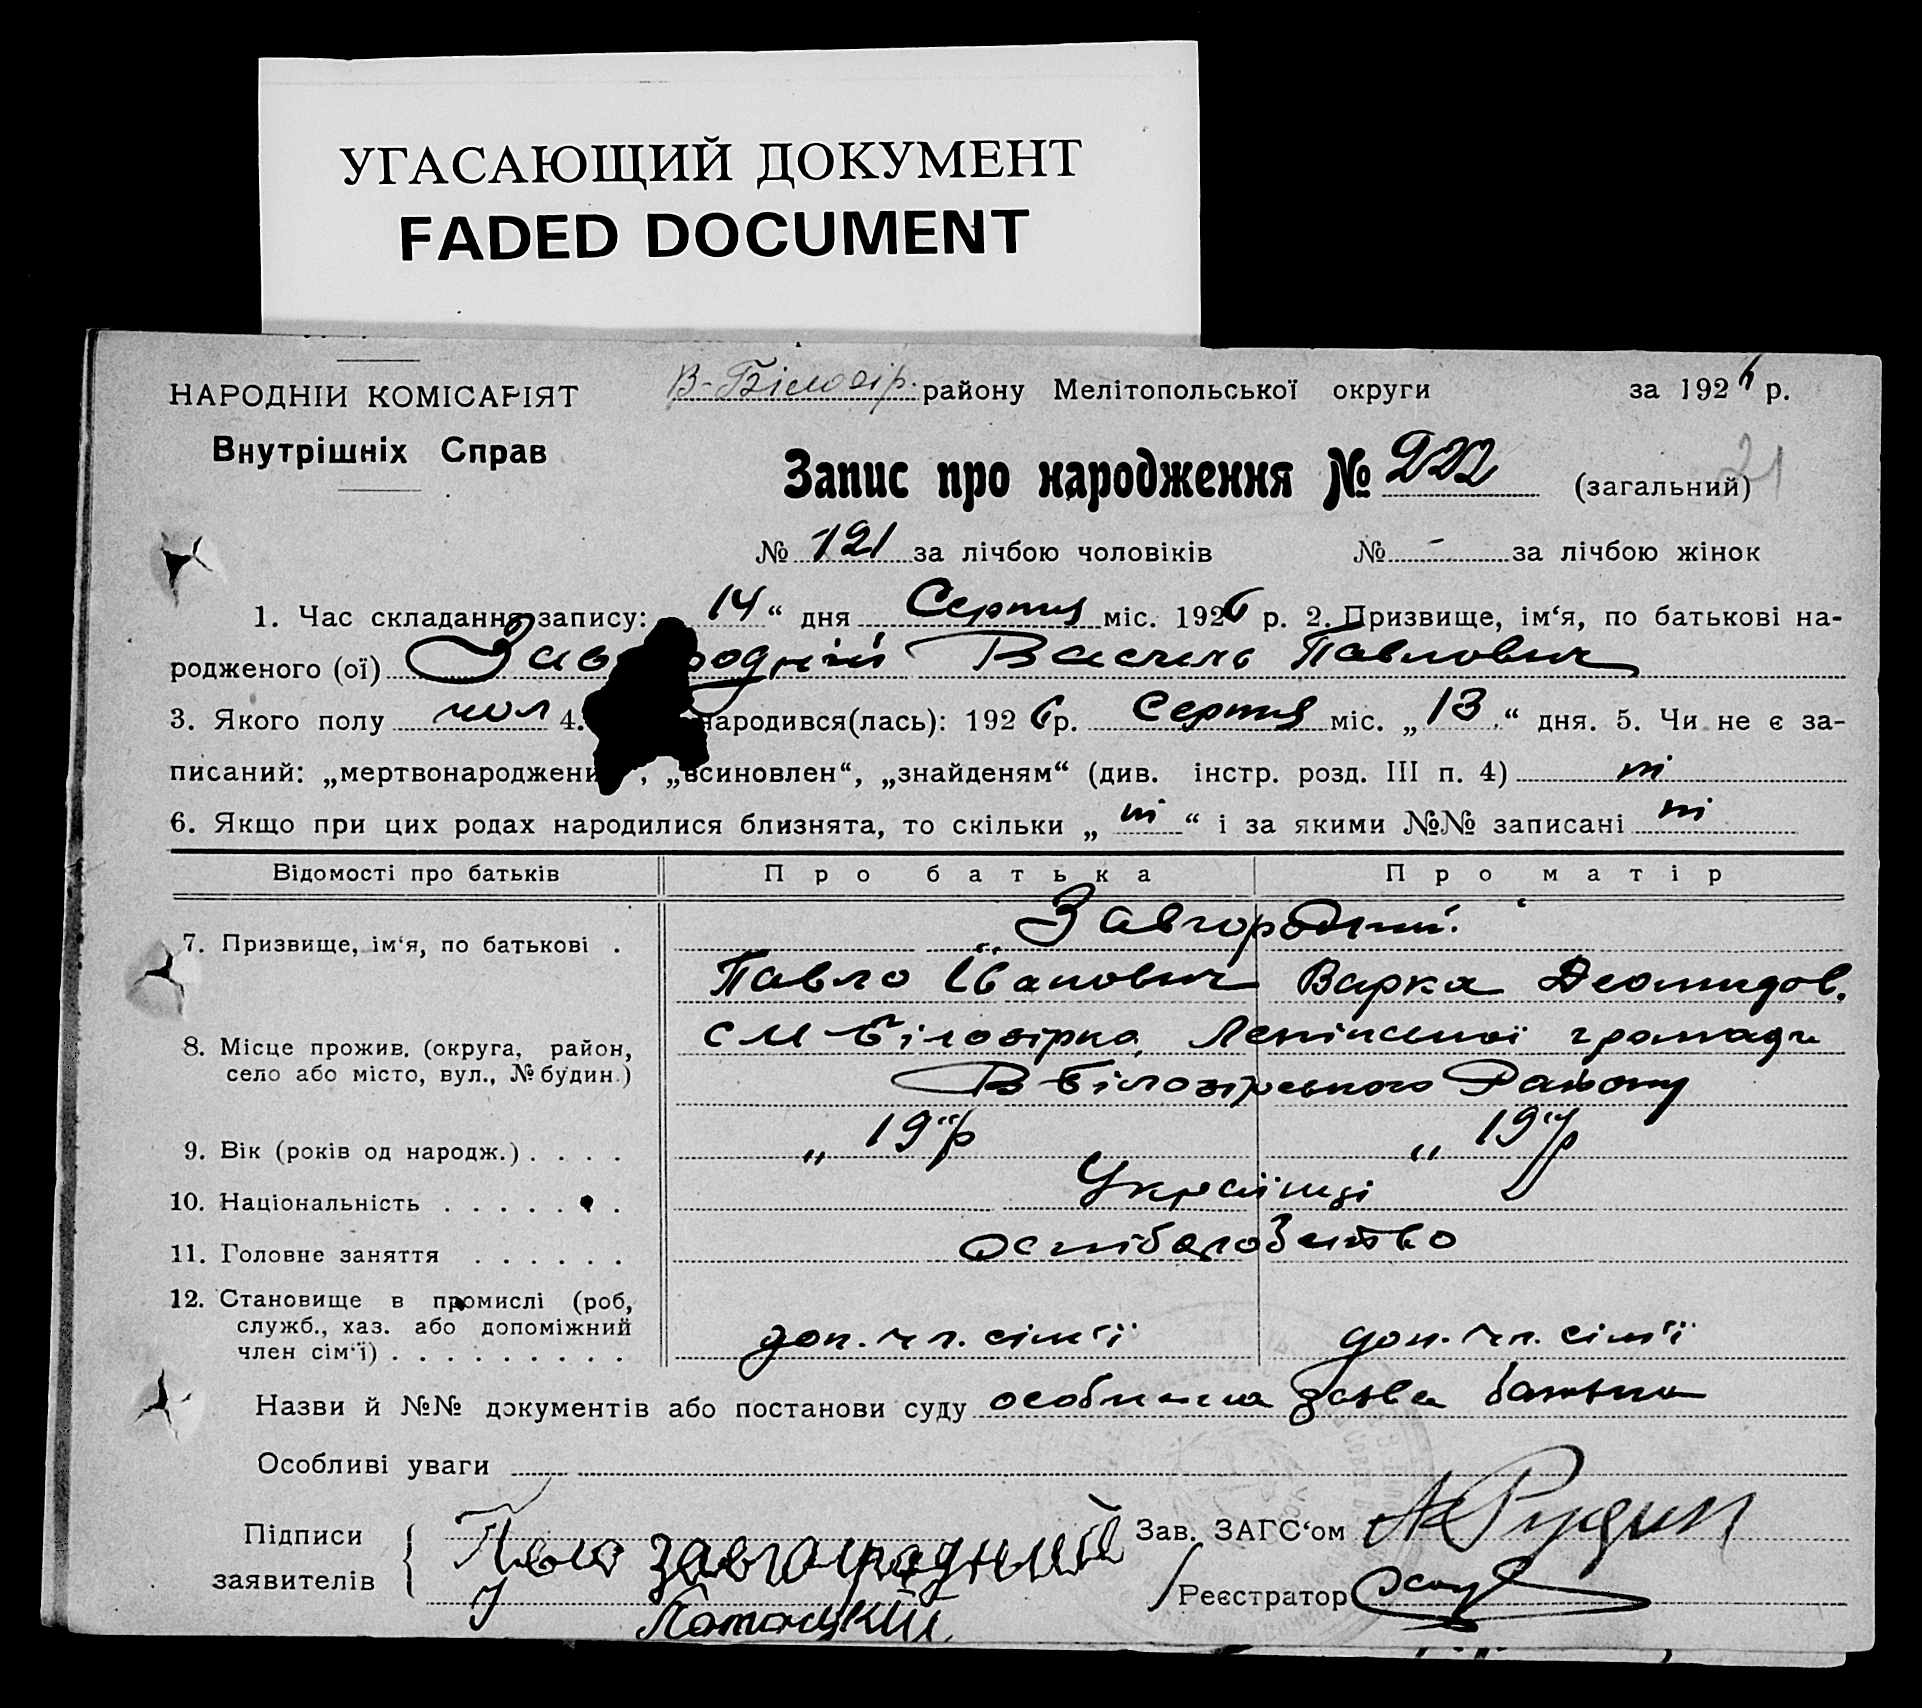 УГАСАЮЩИЙ ДОКУМЕНТ
FADED DOCUMENT
НАРОДНІЙ КОМІСАРІЯТ
Внутрішніх Справ
В-Білозір. району Мелітопольської округи за 1926 р.
Запис про народження № 222 (загальний) 21
№ 121 за лічбою чоловіків № - за лічбою жінок
1. Час складання запису: 14“ дня Серпня міс. 1926 р. 2. Призвище, ім‘я, по батькові на-
родженого (ої) Зав родній Василь Павлович
3. Якого полу чол 4. народився(лась): 1926 р. Серпня міс. „13“ дня. 5. Чи не є за-
писаний: „мертвонароджени , „всиновлен“, „знайденям“ (див. інстр. розд. III п. 4) ні
6. Якщо при цих родах народилися близнята, то скільки „ні“ і за якими №№ записані ні
Відомості про батьків Про батька Про матір
7. Призвище, ім‘я, по батькові . Завгородний.
Павло Іванович Варка Деомидов.
8. Місце прожив. (округа, район, с М Білозірка, Ленінської громади
село або місто, вул., № будин.) В Білозірського Району
9. Вік (років од народж.) . . . . „ 19 р „ 19 р
10. Національність . . . . . . . Українці
11. Головне заняття . . . . . .
12. Становище в промислі (роб,
служб., хаз. або допоміжний
член сім‘ї) . . . . . . . . . доп. чл. сім'ї доп. чл. сім'ї
Назви й №№ документів або постанови суду особиста заява батька
Особливі уваги
Підписи Завгородный Зав. ЗАГС‘ом
заявителів Реєстратор